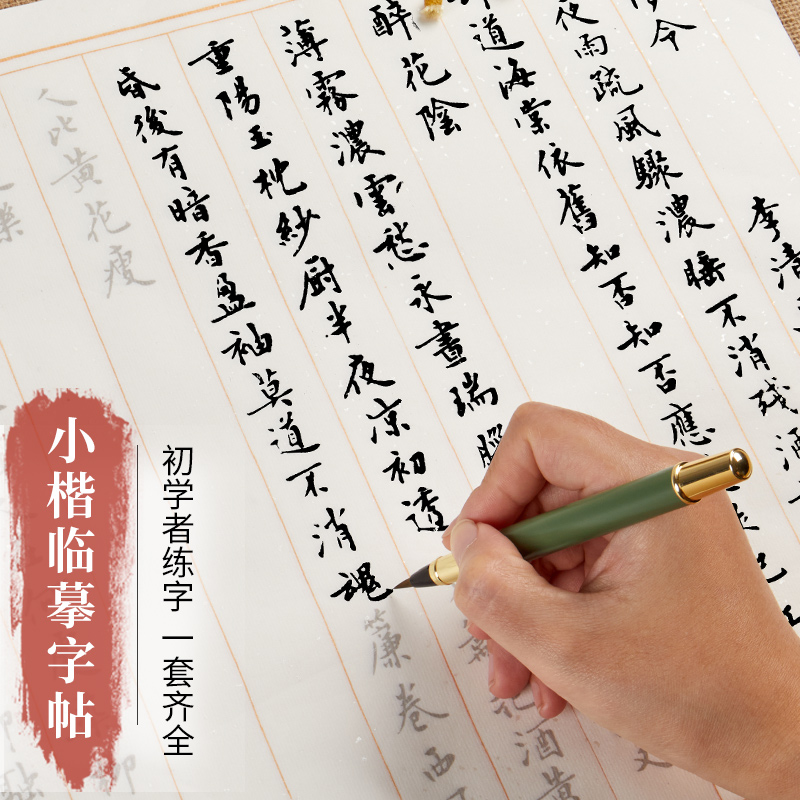 令 李清
夜雨疏風驟濃睡不消残酒
道海棠依舊知否知否應
醉花陰
薄霧濃雲愁永晝瑞腦
重陽玉枕紗厨半夜凉初透 酒黄
昏後有暗香盈袖莫道不消魂簾卷西
人比黄花瘦
小楷临摹字帖
初学者练字 一套齐全